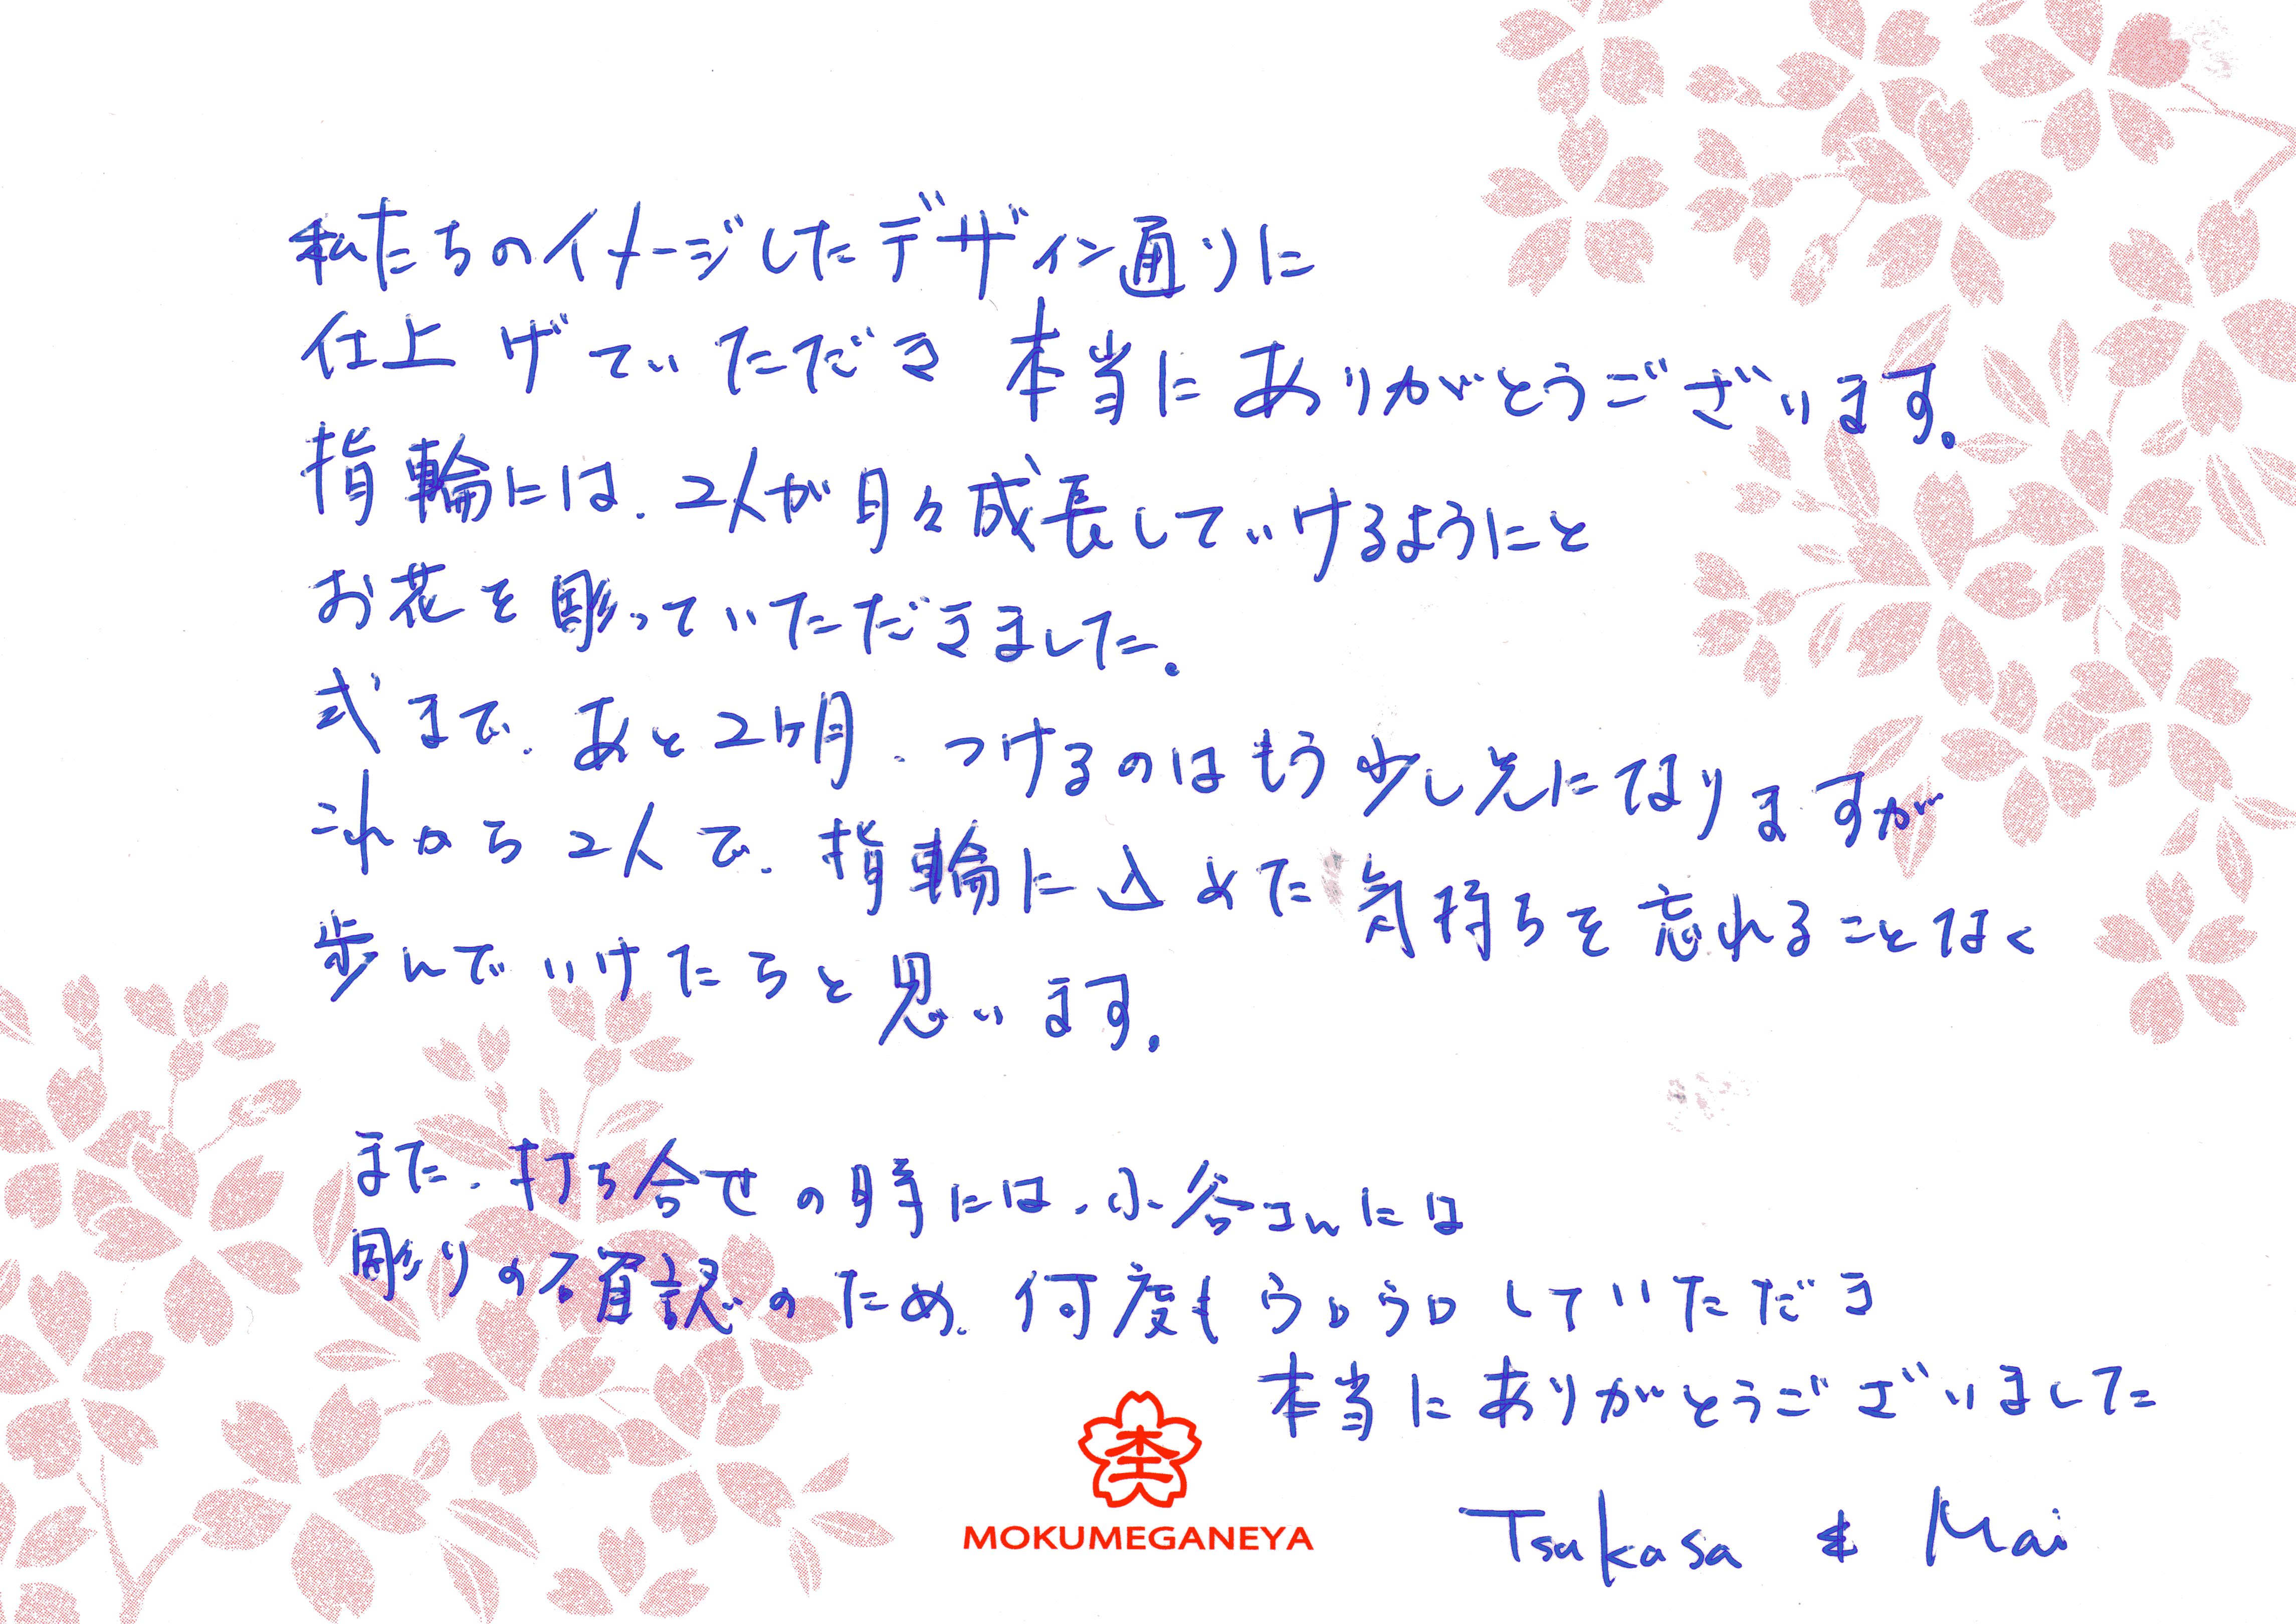 私たちのイメージしたデザイン通りに
仕上げていただき 本当にありがとうございます。
指輪には、2人が日々成長していけるようにと
お花を彫っていただきました。
式まで、あと2ヶ月、つけるのはもう少し先になりますが
これから2人で、指輪に込めた気持ちを忘れることなく
歩んでいけたらと思います。
また、打ち合せの時には、小谷さんには
彫りの確認のため、何度もウロウロしていただき
本当にありがとうございました
杢
MOKUMEGANEYA
Tsukasa & Mai